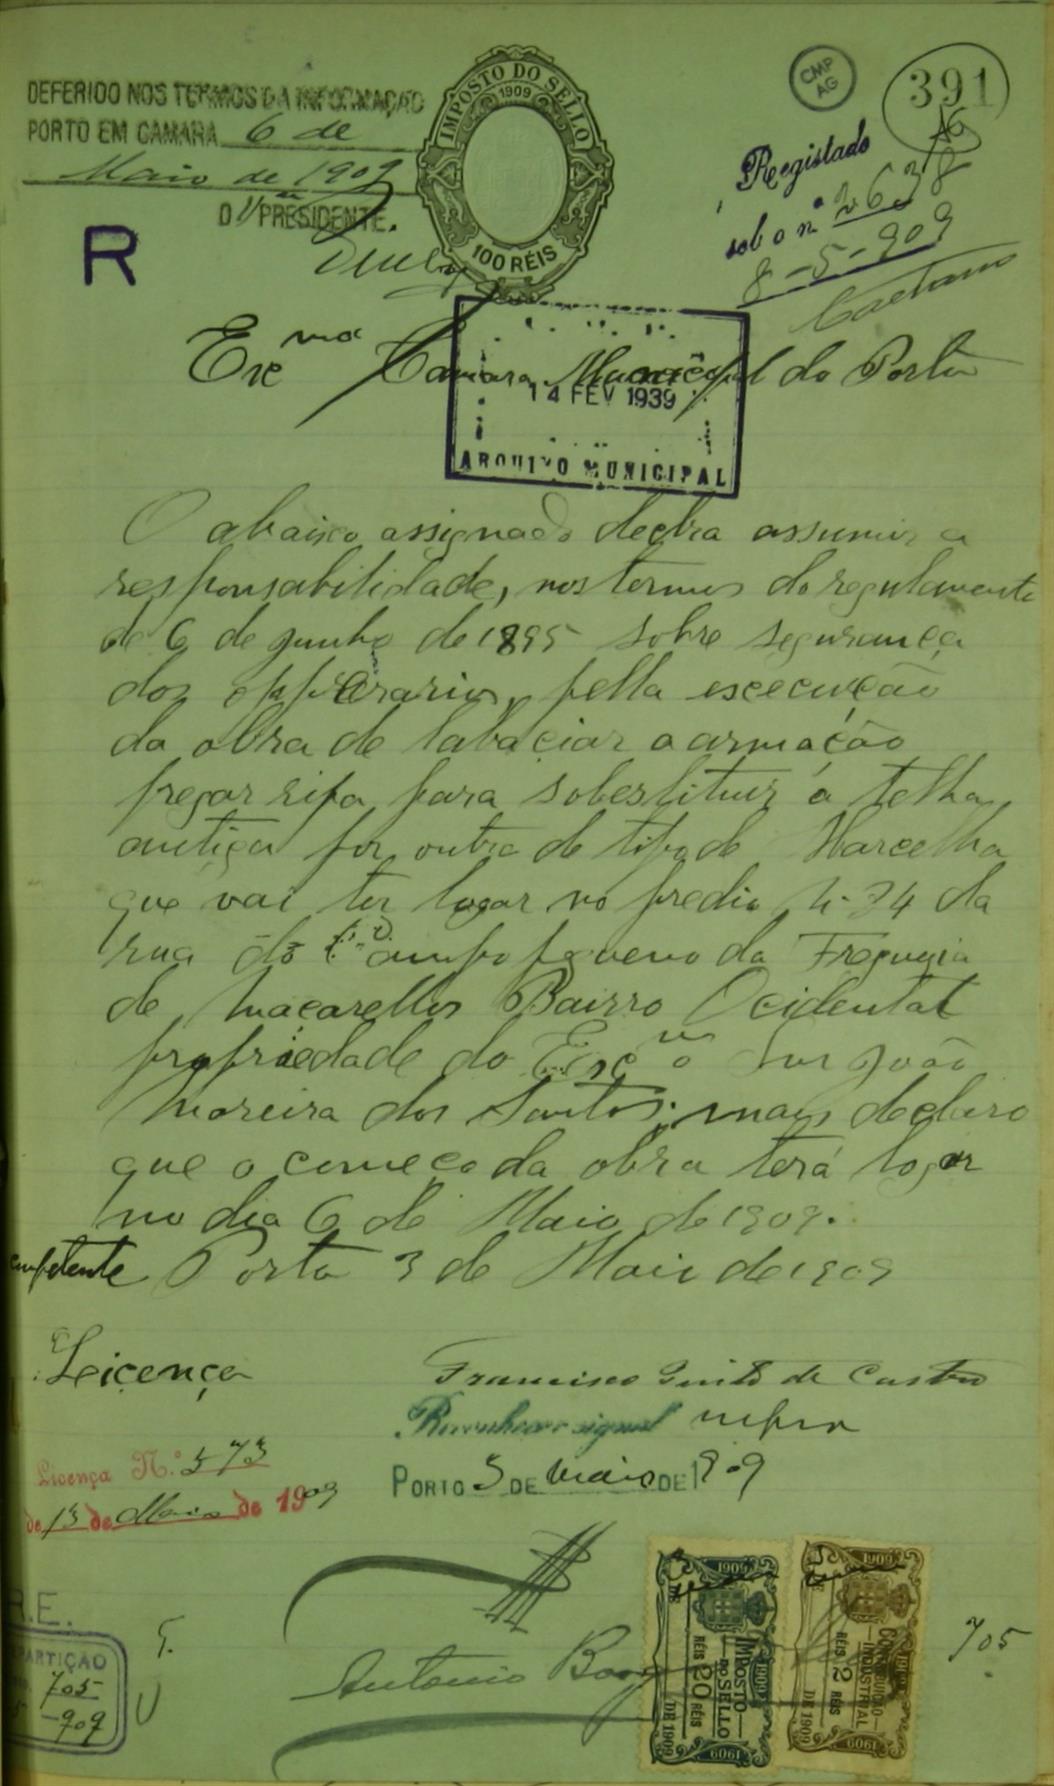 DEFERIDO NOS TERMOS DA INFORMAÇÃO
PORTO EM CAMARA 6 de
Maio de 1909
O PRESIDENTE.
R
IMPOSTO DO SELLO
1909
100 RÉIS
CMP
AG
391
Registado
sob o nº 2638
8-5-909
Caetano
Exma Camara Municipal do Porto
14 FEV 1939
ARQUIVO MUNICIPAL
O abaixo assignado declra assumir a
responsabilidade, nos termos do regulamento
de 6 de Junho de 1895 sobre segurança
dos opperarios, pella escecução
da obra de a armação
pregar ripa para sobestituir a telha
antiga por outra de tipo de Marcelha
que vai ter logar no predio 74 da
rua do Campo pequeno da Freguezia
de Maçarellos Bairro Ocidental
propriedade do Exmo Snr João
Moreira dos Santos; mais declaro
que o começo da obra terá logar
no dia 6 de Maio de 1909.
Porto 3 de Maio de 1909
Licença
Francisco Pinto de Castro
Reconheço o signal supra
PORTO 5 DE Maio DE 1909
Licença N.º 573
de 13 de Maio de 1909
R.E.
705
-909
Antonio
1909
IMPOSTO
DO SELLO
RÉIS 20 RÉIS
DE 1909
1909
1909
CONTRIBUIÇÃO
INDUSTRIAL
RÉIS 2 RÉIS
DE 1909
1909
705